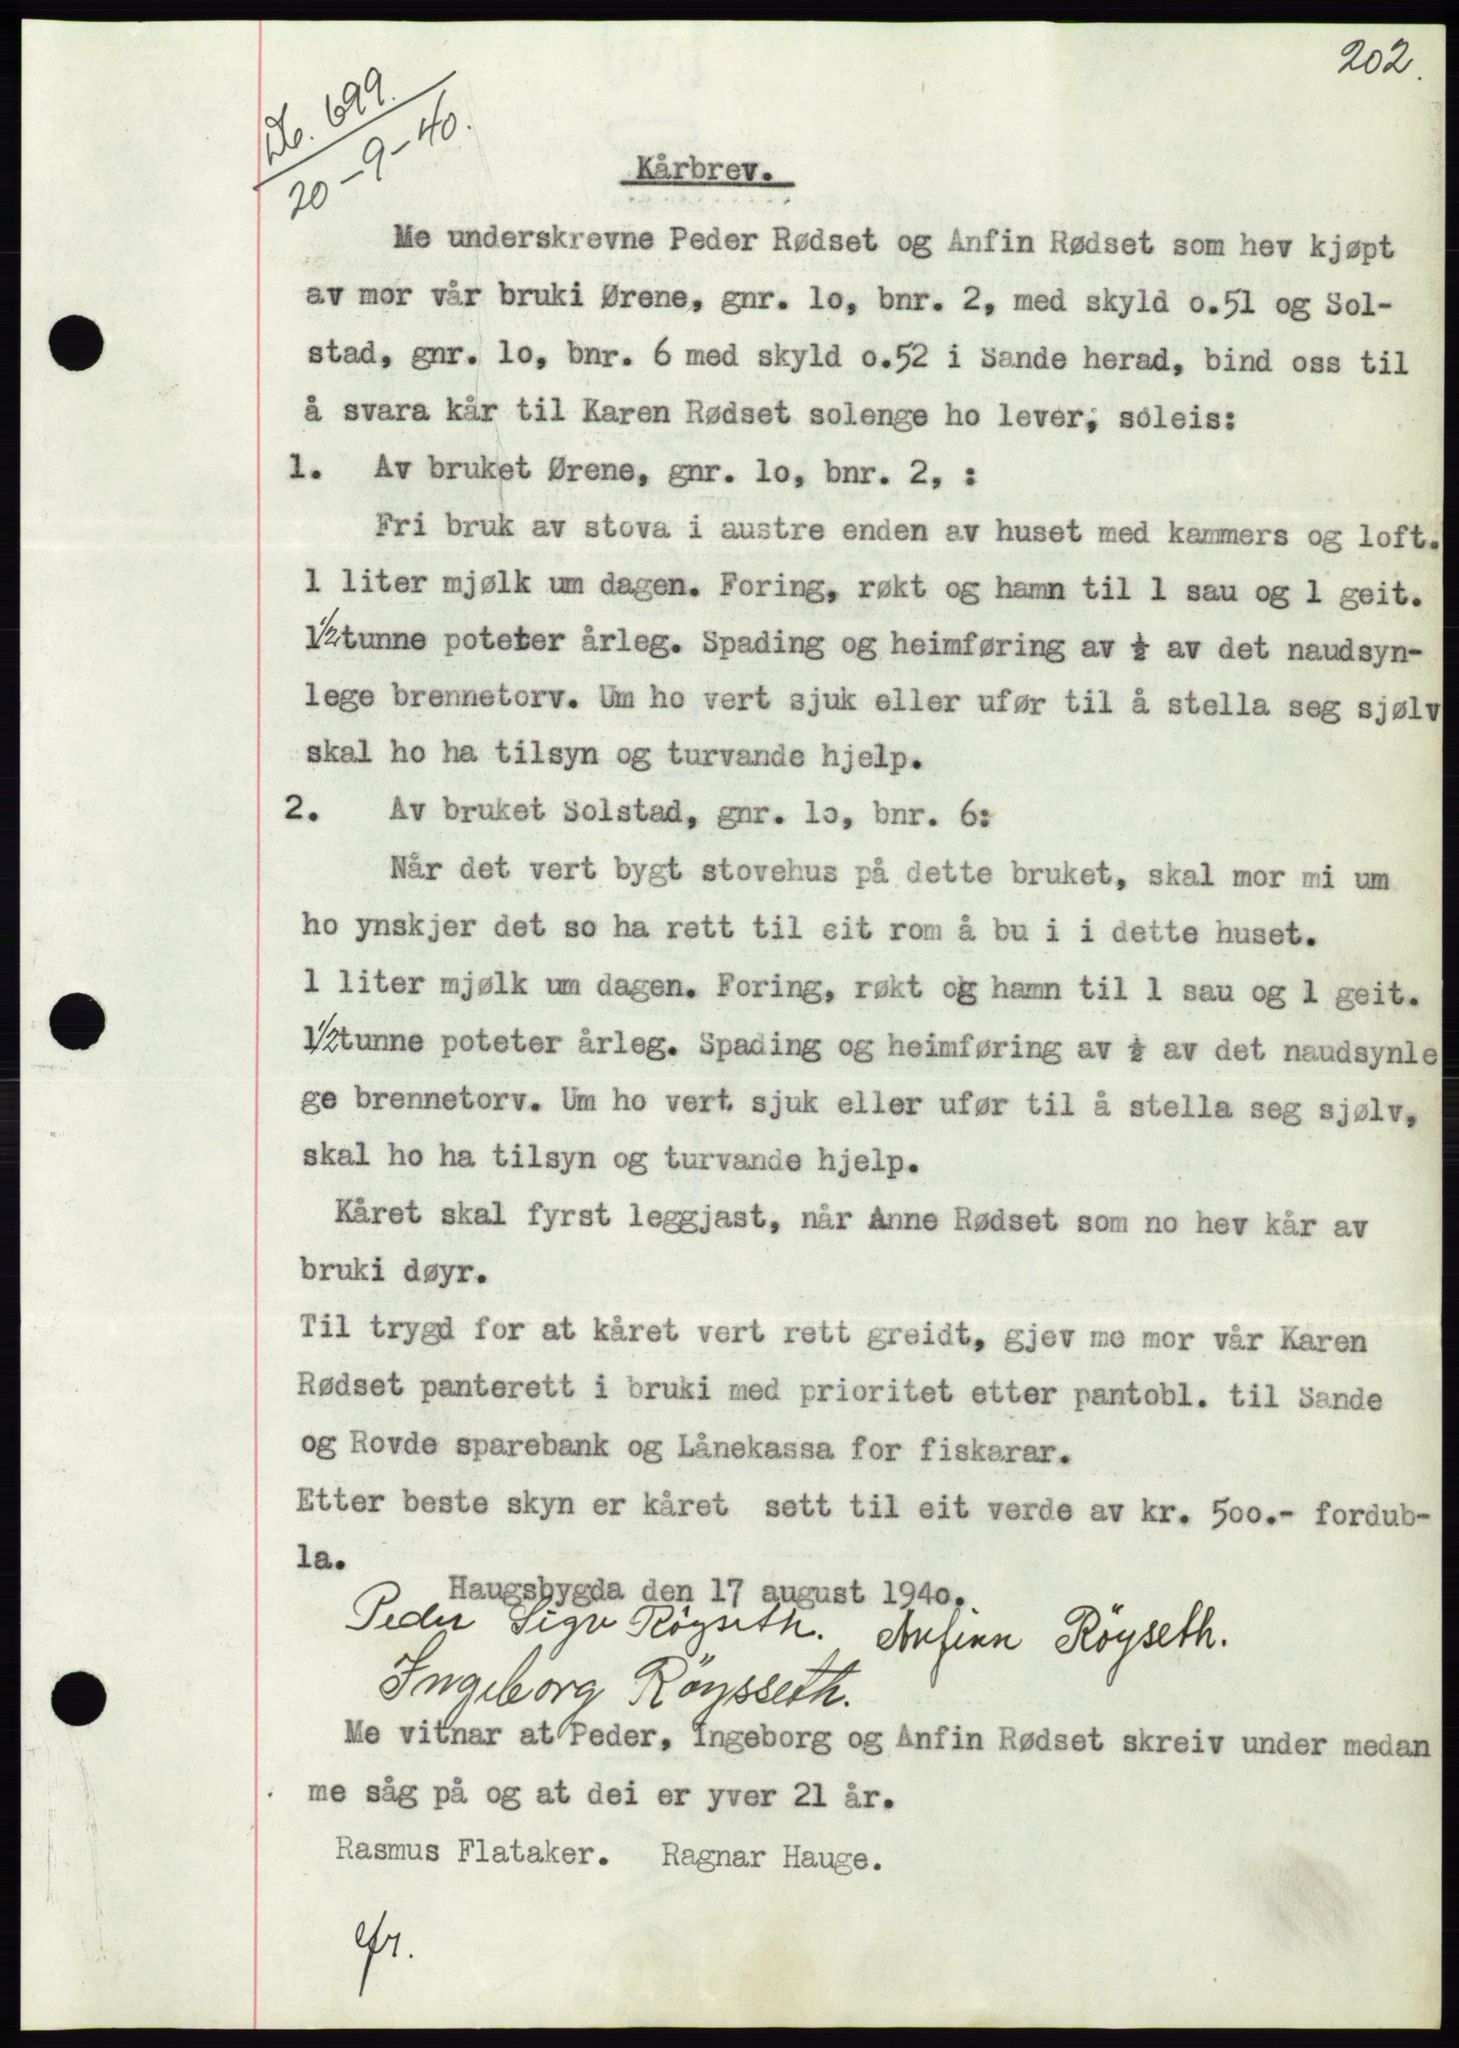 202.
Db. 699.
20-9-40.
Kårbrev.
Me underskrevne Peder Rødset og Anfin Rødset som hev kjøpt
av mor vår bruki Ørene, gnr. lo, bnr. 2, med skyld o.51 og Sol-
stad, gnr. lo, bnr. 6 med skyld o.52 i Sande herad, bind oss til
å svara kår til Karen Rødset solenge ho lever; soleis:
1. Av bruket Ørene, gnr. lo, bnr. 2, :
Fri bruk av stova i austre enden av huset med kammers og loft.
1 liter mjølk um dagen. Foring, røkt og hamn til 1 sau og 1 geit.
1 1/2 tunne poteter årleg. Spading og heimføring av ½ av det naudsyn-
lege brennetorv. Um ho vert sjuk eller ufør til å stella seg sjølv
skal ho ha tilsyn og turvande hjelp.
2. Av bruket Solstad, gnr. lo, bnr. 6:
Når det vert bygt stovehus på dette bruket, skal mor mi um
ho ynskjer det so ha rett til eit rom å bu i i dette huset.
1 liter mjølk um dagen. Foring, røkt og hamn til 1 sau og 1 geit.
1 1/2 tunne poteter årleg. Spading og heimføring av ½ av det naudsynle
ge brennetorv. Um ho vert sjuk eller ufør til å stella seg sjølv,
skal ho ha tilsyn og turvande hjelp.
Kåret skal fyrst leggjast, når Anne Rødset som no hev kår av
bruki døyr.
Til trygd for at kåret vert rett greidt, gjev me mor vår Karen
Rødset panterett i bruki med prioritet etter pantobl. til Sande
og Rovde sparebank og Lånekassa for fiskarar.
Etter beste skyn er kåret sett til eit verde av kr. 500.- fordub-
la.
Haugsbygda den 17 august 1940.
Peder Sigv Röyseth. Anfinn Röyseth.
Ingeborg Röysseth.
Me vitnar at Peder, Ingeborg og Anfin Rødset skreiv under medan
me såg på og at dei er yver 21 år.
Rasmus Flataker. Ragnar Hauge.